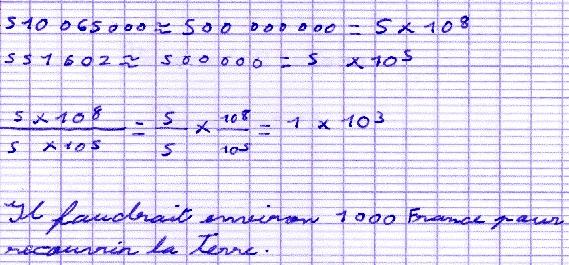 510 065000 ≈ 500 000 000 = 5 × 10⁸
551602 ≈ 500000 = 5 × 10⁵
5 × 10⁸ / 5 × 10⁵ = 5/5 × 10⁸/10⁵ = 1 × 10³
Il faudrait environ 1000 France pour
recouvrir la Terre.